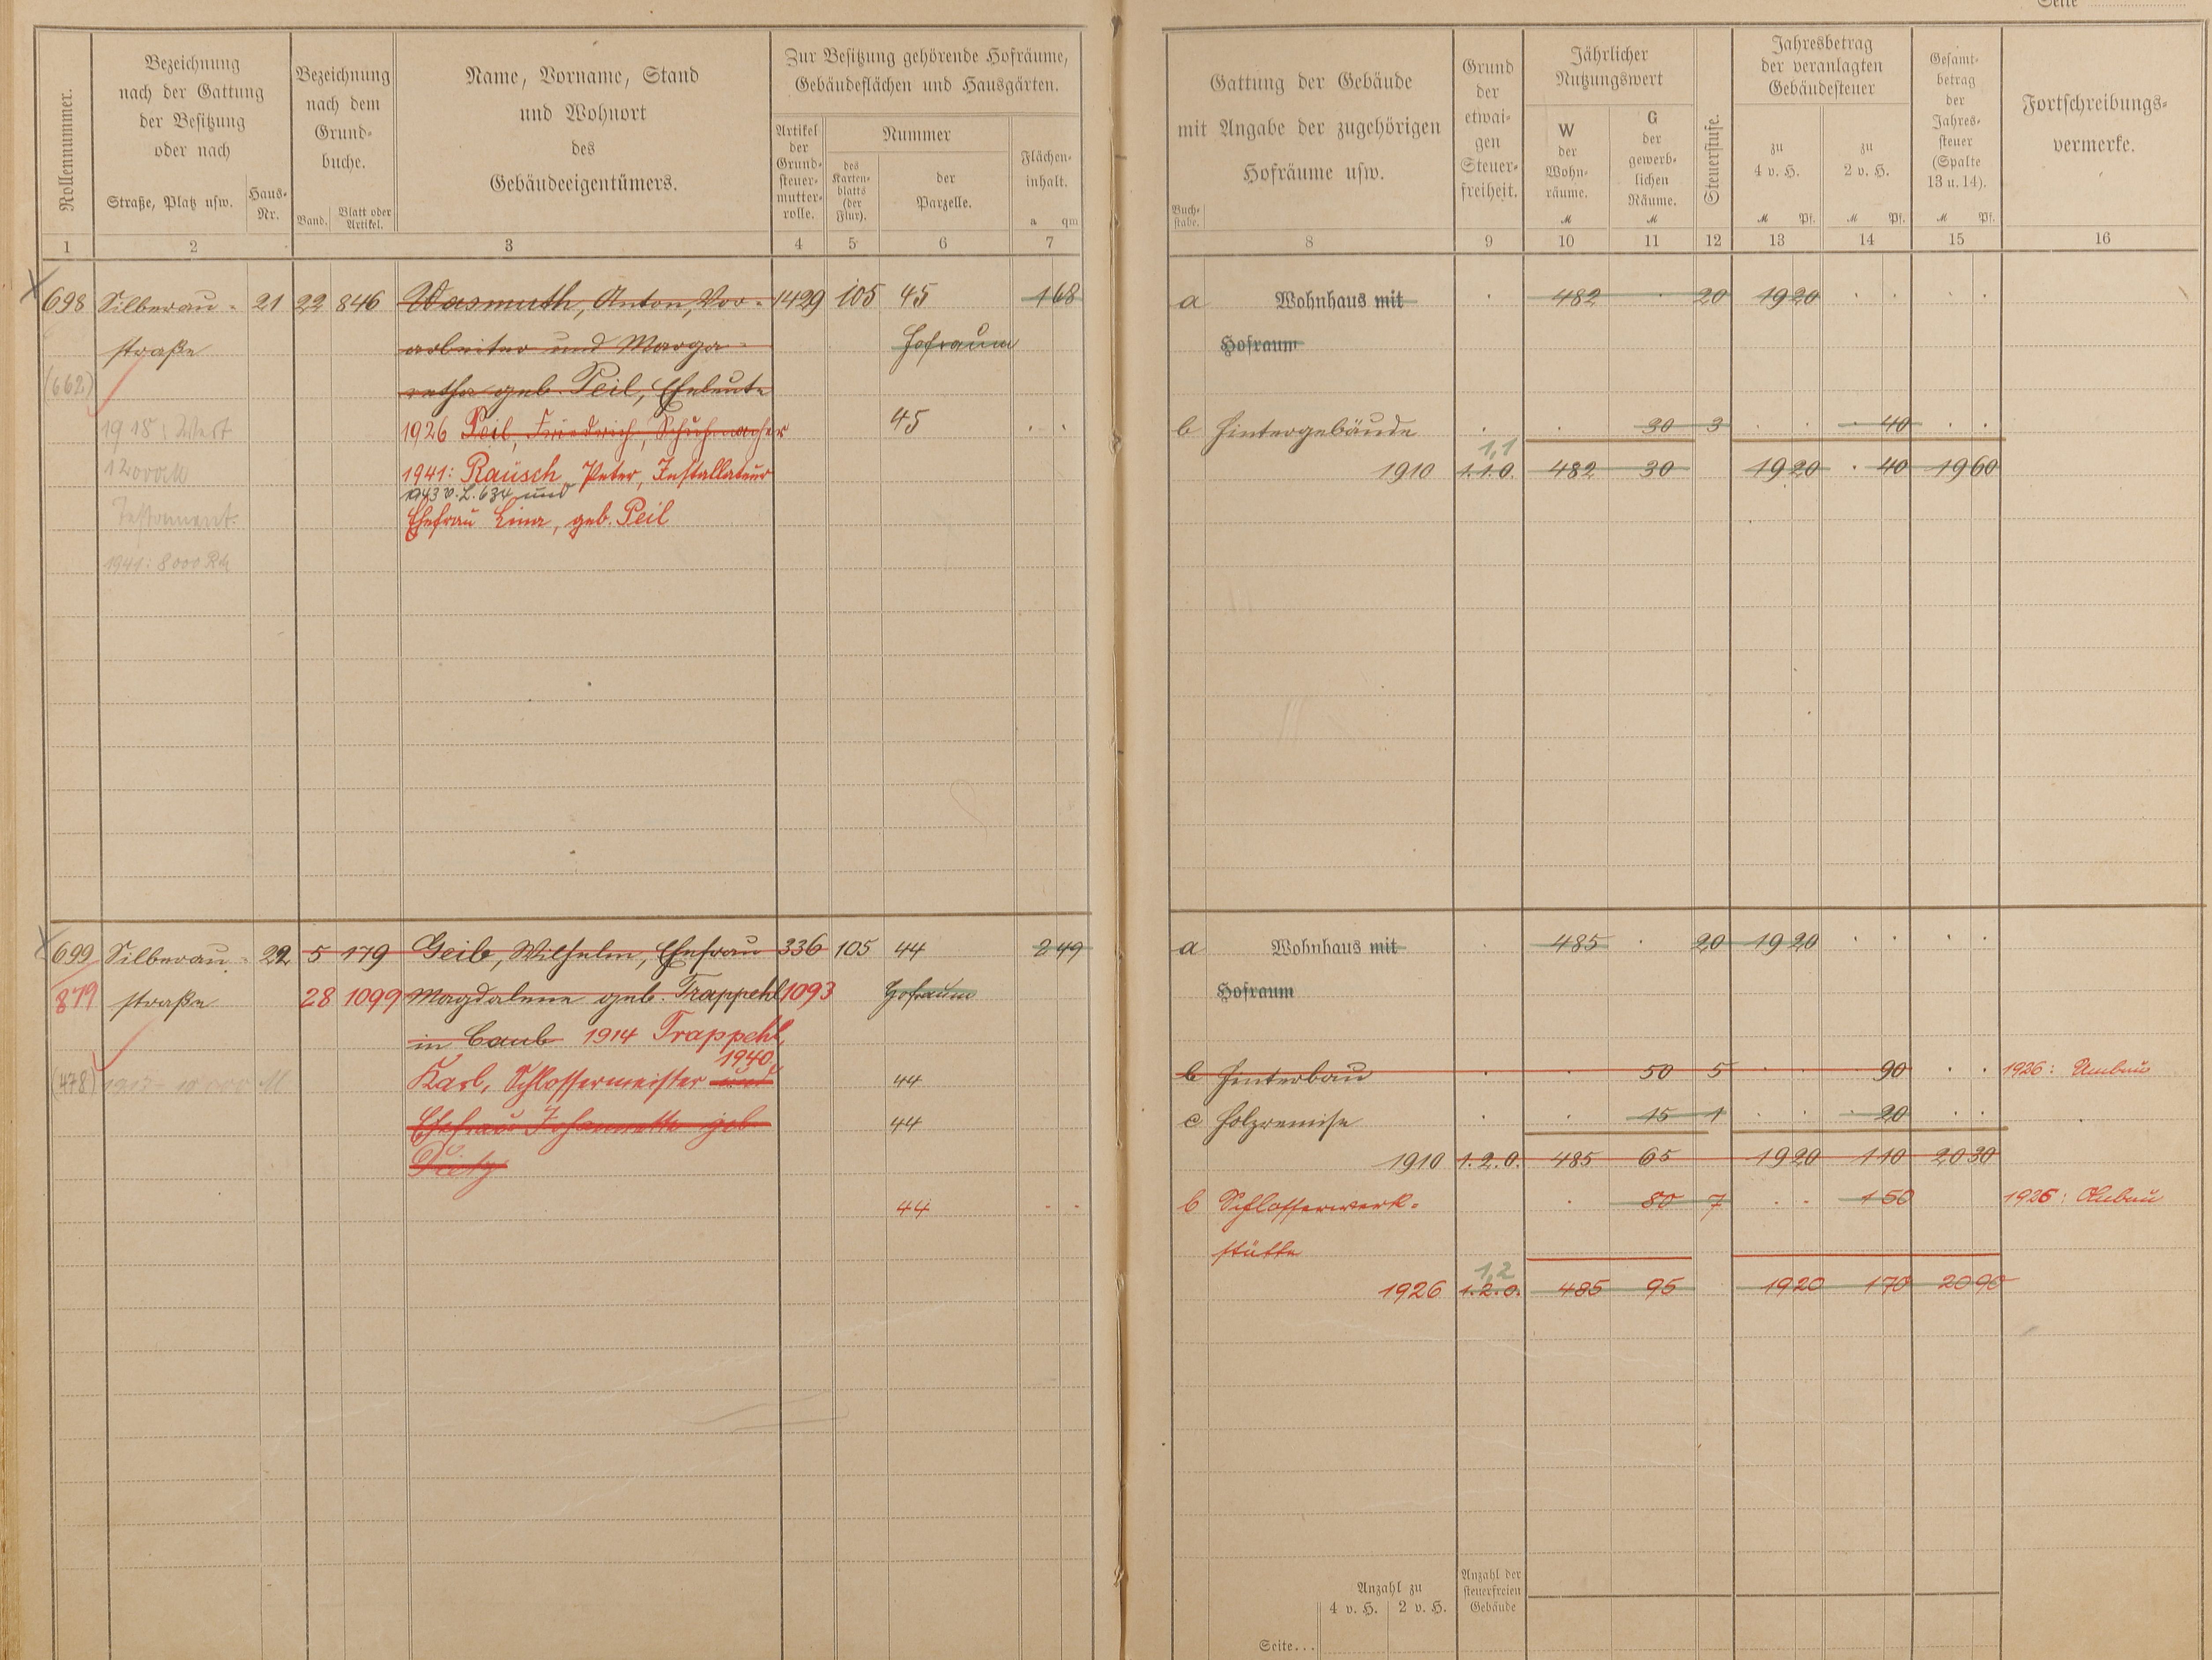 Seite
Rollennummer.
Bezeichnung
nach der Gattung
der Besitzung
oder nach
Straße, Platz usw.
Haus-
Nr.
Bezeichnung
nach dem
Grund-
buche.
Band.
Blatt oder
Artikel.
Name, Vorname, Stand
und Wohnort
des
Gebäudeeigentümers.
Zur Besitzung gehörende Hofräume,
Gebäudeflächen und Hausgärten.
Artikel
der
Grund-
steuer-
mutter-
rolle.
Nummer
des
Karten-
blatts
(der
Flur).
der
Parzelle.
Flächen-
inhalt.
a qm
1 2 3 4 5 6 7
698 Silberau- 21 22 846 Wasmuth, Anton, Vor- 1429 105 45 168
straße arbeiter und Marga- Hofraum
(662) retha geb. Peil, Eheleute
1918: Wert 1926 Peil, Friedrich, Schuhmacher 45
12000M 1941: Rausch Peter, Installateur
1943 v. L. 634 und
Testament. Ehefrau Lina, geb. Peil
1941: 8000 RM
699 Silberau- 22 5 179 Geib, Wilhelm, Ehefrau 336 105 44 249
879 straße 28 1099 Magdalene geb. Trappehl 1093 Hofraum
in Caub 1914 Trappehl,
1940
(478) Karl, Schlossermeister und 44
Ehefrau Johannette geb. 44
44
Gattung der Gebäude
mit Angabe der zugehörigen
Hofräume usw.
Buch-
stabe.
Grund
der
etwai-
gen
Steuer-
freiheit.
Jährlicher
Nutzungswert
W
der
Wohn-
räume.
M
G
der
gewerb-
lichen
Räume.
M
Steuerstufe.
Jahresbetrag
der veranlagten
Gebäudesteuer
zu
4 v. H.
M Pf.
zu
2 v. H.
M Pf.
Gesamt-
betrag
der
Jahres-
steuer
(Spalte
13 u. 14).
M Pf.
Fortschreibungs-
vermerke.
8 9 10 11 12 13 14 15 16
a Wohnhaus mit 482 20 19 20
Hofraum
b Hintergebäude 30 3 40
1,1
1910 1.1.0. 482 30 19 20 40 19 60
a Wohnhaus mit 485 20 19 20
Hofraum
b Hinterbau 50 5 90 1926: Umbau
c Holzremise 15 1 20
1910 1.2.0. 485 65 19 20 1 10 20 30
b Schlosserwerk- 80 7 1 50 1926: Anbau
stätte
1,2
1926 1.2.0. 485 95 19 20 1 70 20 90
Anzahl zu
4 v. H. 2 v. H.
Anzahl der
steuerfreien
Gebäude
Seite...